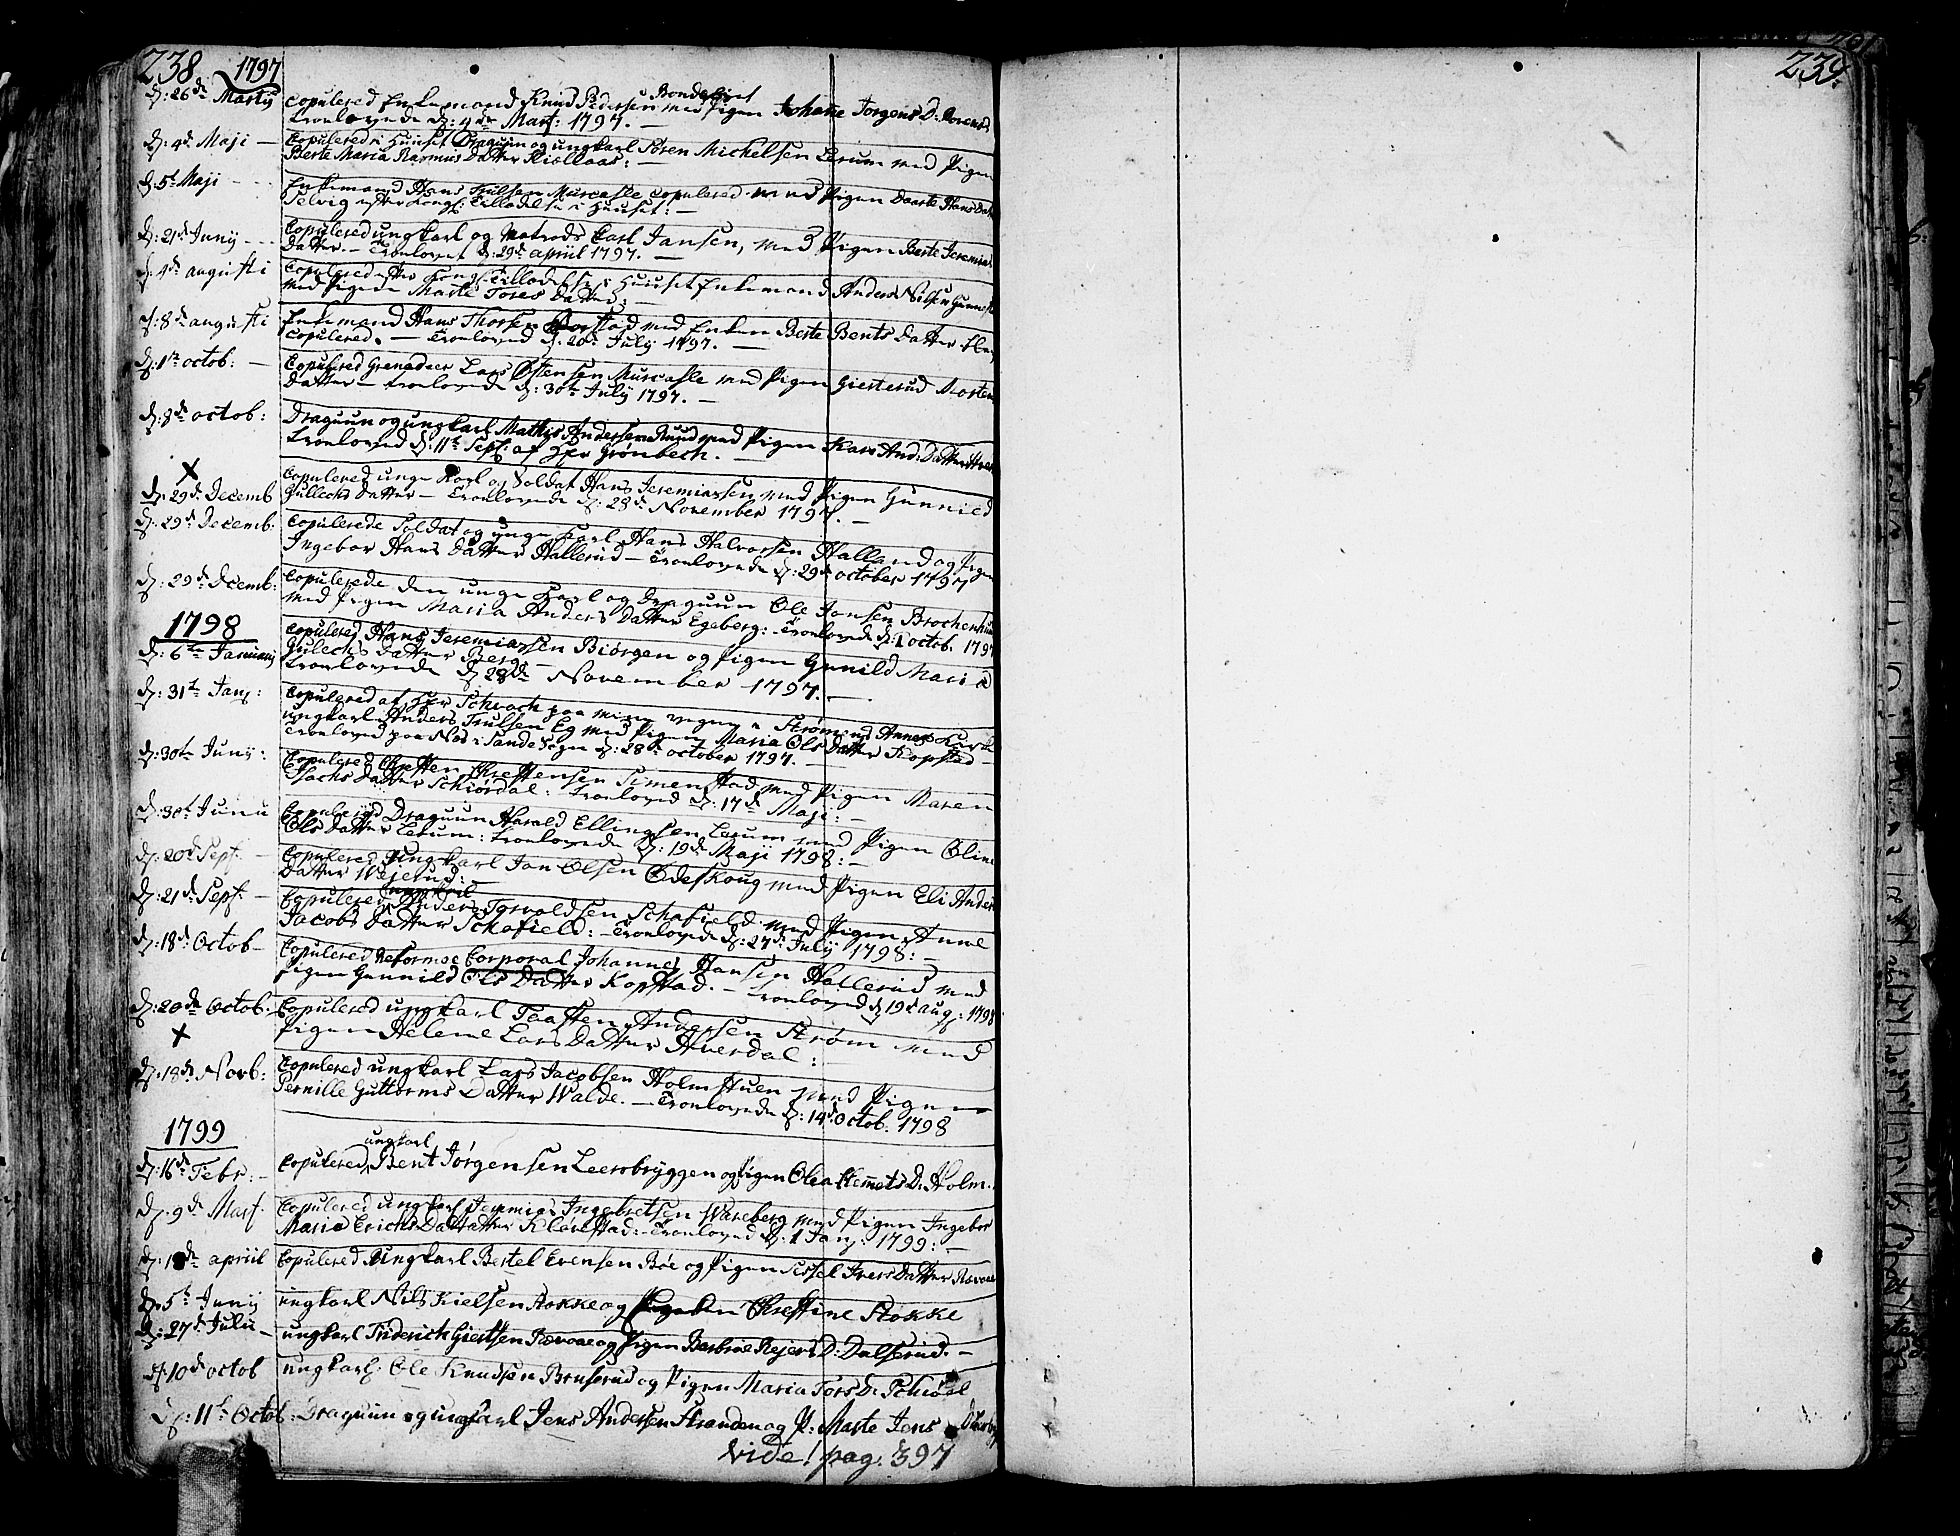 238 1797
d: 26de Martij Copulered Enkemand Knud Pedersen Bondelivet med Pigen Johane Jorgens D:
Trolovede d: 4de Mart: 1797. —
d: 4de Maji — Copulered i Huuset Draguun og ungkarl Søren Michelsen Lerum med Pigen
Berte Maria Rasmus Datter Kiøllaas: —
d: 5t Maji - - - Enkemand Hans Trulsen Murcasle Copulered med Pigen Daarte Hans Dat
Selvig efter Kongl: Tilladelse i Huuset: —
d: 21de Junij - - - Copulered ungkarl og Matrods Carl Jansen, med Pigen Berte Jeremias
Datter. — Trolovet d: 29de april 1797. —
d: 4de augusti Copulered efter Kongl: Tilladelse i Huuset Enkemand Anders Nilsen
med Pigen Marte Tores Datter: —
d: 8de augusti Enkemand Hans Thorsen med Enken Berte Bents Datter
Copulered. — Trolovede d. 20de July 1797. —
d: 1te octob: — Copulered Grenadeer Lars Østensen Murcasle med Pigen Giesterud Morten
Datter — trolovede d: 30te July 1797. —
d: 8de octob: Draguun og ungkarl Mathys Andersen Ruud med Pigen Kari And: Datter
trolovede d: 11te Sept: af Hr Grønbech. —
×
d: 29de Decemb Copulered unge Karl og Soldat Hans Jeremiassen med Pigen Gunnild
Gullechs Datter — Trolovede d: 28de November 1797. —
d: 29de Decemb: Copulerede Soldat og unge Karl Hans Halvorsen Halland og Pigen
Ingebor Hans Datter Hallerud — Trolovede d: 29de october 1797
d: 29de Decemb: Copulerede den unge Karl og Draguun Ole Jansen Brochenhuus
med Pigen Maria Anders Datter Egeberg: Trolovede d: 1 octob. 1797
1798
d: 6te Januarij Copulered Hans Jeremiassen Biørgen og Pigen Gunild Maria
Gulechs Datter Berg —
trolovede d 28de November 1797. —
d: 31te Jan: Copulered af Hr Schwach paa mine vegne i Strømmens Annex Kirke
ungkarl Anders Trulsen Eg med Pigen Maria Ols Datter Kopstad —
trolovede paa Næs i Sande Sogn d: 28de october 1797. —
d: 30te Junij: Copulered Christen Christensen Simenstad med Pigen Maren
Isachs Datter Schiørdal: trolovede d: 17de Maji: —
d: 30te Junii Copulered Draguun Harald Ellingsen Lerum med Pigen Oline
Ols Datter Lerum: trolovede d: 19de Maji 1798: —
d: 20de Sept. — Copulered ungkarl Jan Olsen Ødeskoug med Pigen Eli Anders
Datter Wejerud: —
d: 21de Sept. — Copulered ungkarl Peder Torvaldsen Schafield med Pigen Anne
Jacobs Datter Schafield: — Trolovede d: 27de July 1798: —
d: 18de Octob — Copulered Reformee Corporal Johannes Hansen Hallerud med
Pigen Gunnild Ols Datter Kopstad. — trolovede d 19de aug: 1798
d: 20de Octob. Copulered ungkarl Taasten Andersen Strøm med
× Pigen Helene Lars Datter Hverdal:
d: 18de Novb: Copulered ungkarl Lars Jacobsen Holmstuen med Pigen
Pernille Guttorms Datter Walde. — Trolovede d: 14de Octob. 1798
1799
d: 16de Febr: — Copulered ungkarl Bent Jørgensen Leersbryggen og Pigen Olea Klemmets D: Holm.
d: 9de Mart. Copulered ungkarl Jeremias Ingebretsen Wareberg med Pigen Ingebor
Maria Erichs Datter Klønstad: — Trolovede d: 1 Jan: 1799: —
d: april Copulered Ungkarl Bertel Evensen Bøe og Pigen Sissel Ivers Datter
d: 5te Junij ungkarl Nils Kielsen Stokke og Christine Stokke
d: 27de Julii — ungkarl Friderich Giertsen Revoae og Pigen Barbroe Rejers D: Dalserud. —
d: 10de octob ungkarl: Ole Knudsen Bruserud og Pigen Maria Tors D: Schiøsl
d: 11te Octob: Draguun og ungkarl Jens Andersen Stranden og P: Marte Jens
vide! pag: 397
239.